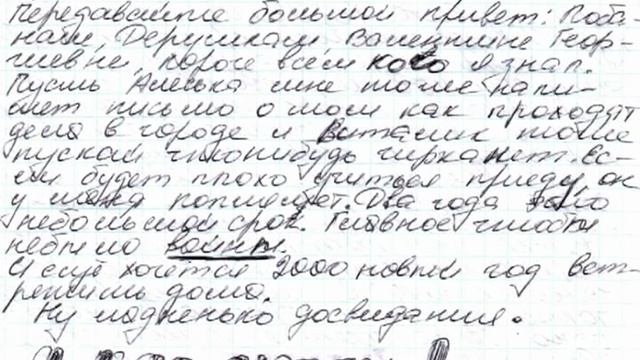 Передавайте большой привет: Лоба-
нам, Дерушкам Валентине Геор-
гиевне, короче всем кого я знал.
Пусть Алёшка мне тоже напи-
шет письмо о том как проходят
дела в городе и Виталик тоже
пускай чтонибудь чирканет. Ес-
ли будет плохо учиться приеду, он
у меня попляшет. Два года это
небольшой срок. Главное чтобы
небыло войны.
И ещё хочется 2000 новый год вст-
ретить дома.
Ну ладненько досвидания.